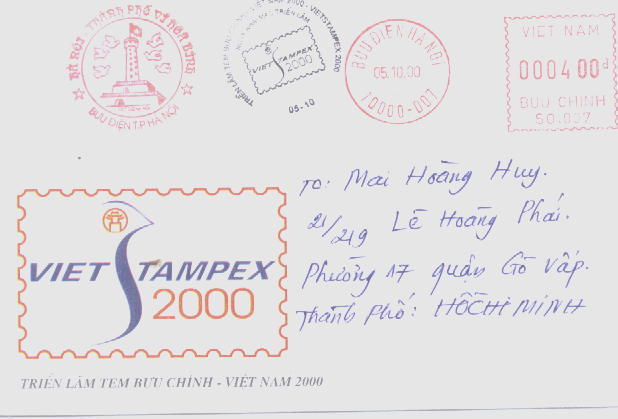 HÀ NỘI - THÀNH PHỐ VÌ HÒA BÌNH
BƯU ĐIỆN T.P HÀ NỘI
VIETSTAMPEX 2000
VIET STAMPEX
2000
05-10
BUU DIEN HA NOI
05.10.00
10000-007
VIET NAM
000400đ
BUU CHINH
SO.007
TO: Mai Hoàng Huy.
21/219 Lê Hoàng Phái.
Phường 17 quận Gò Vấp.
Thành phố: HỒ CHÍ MINH
VIET STAMPEX
2000
TRIỂN LÃM TEM BƯU CHÍNH - VIỆT NAM 2000